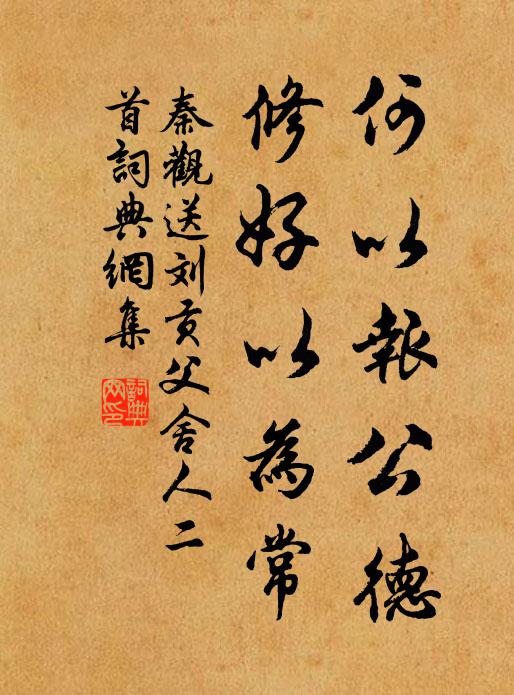 何以報公德
修好以為常
秦觀送刘貢父舍人二
首詞典網集
詞典網印